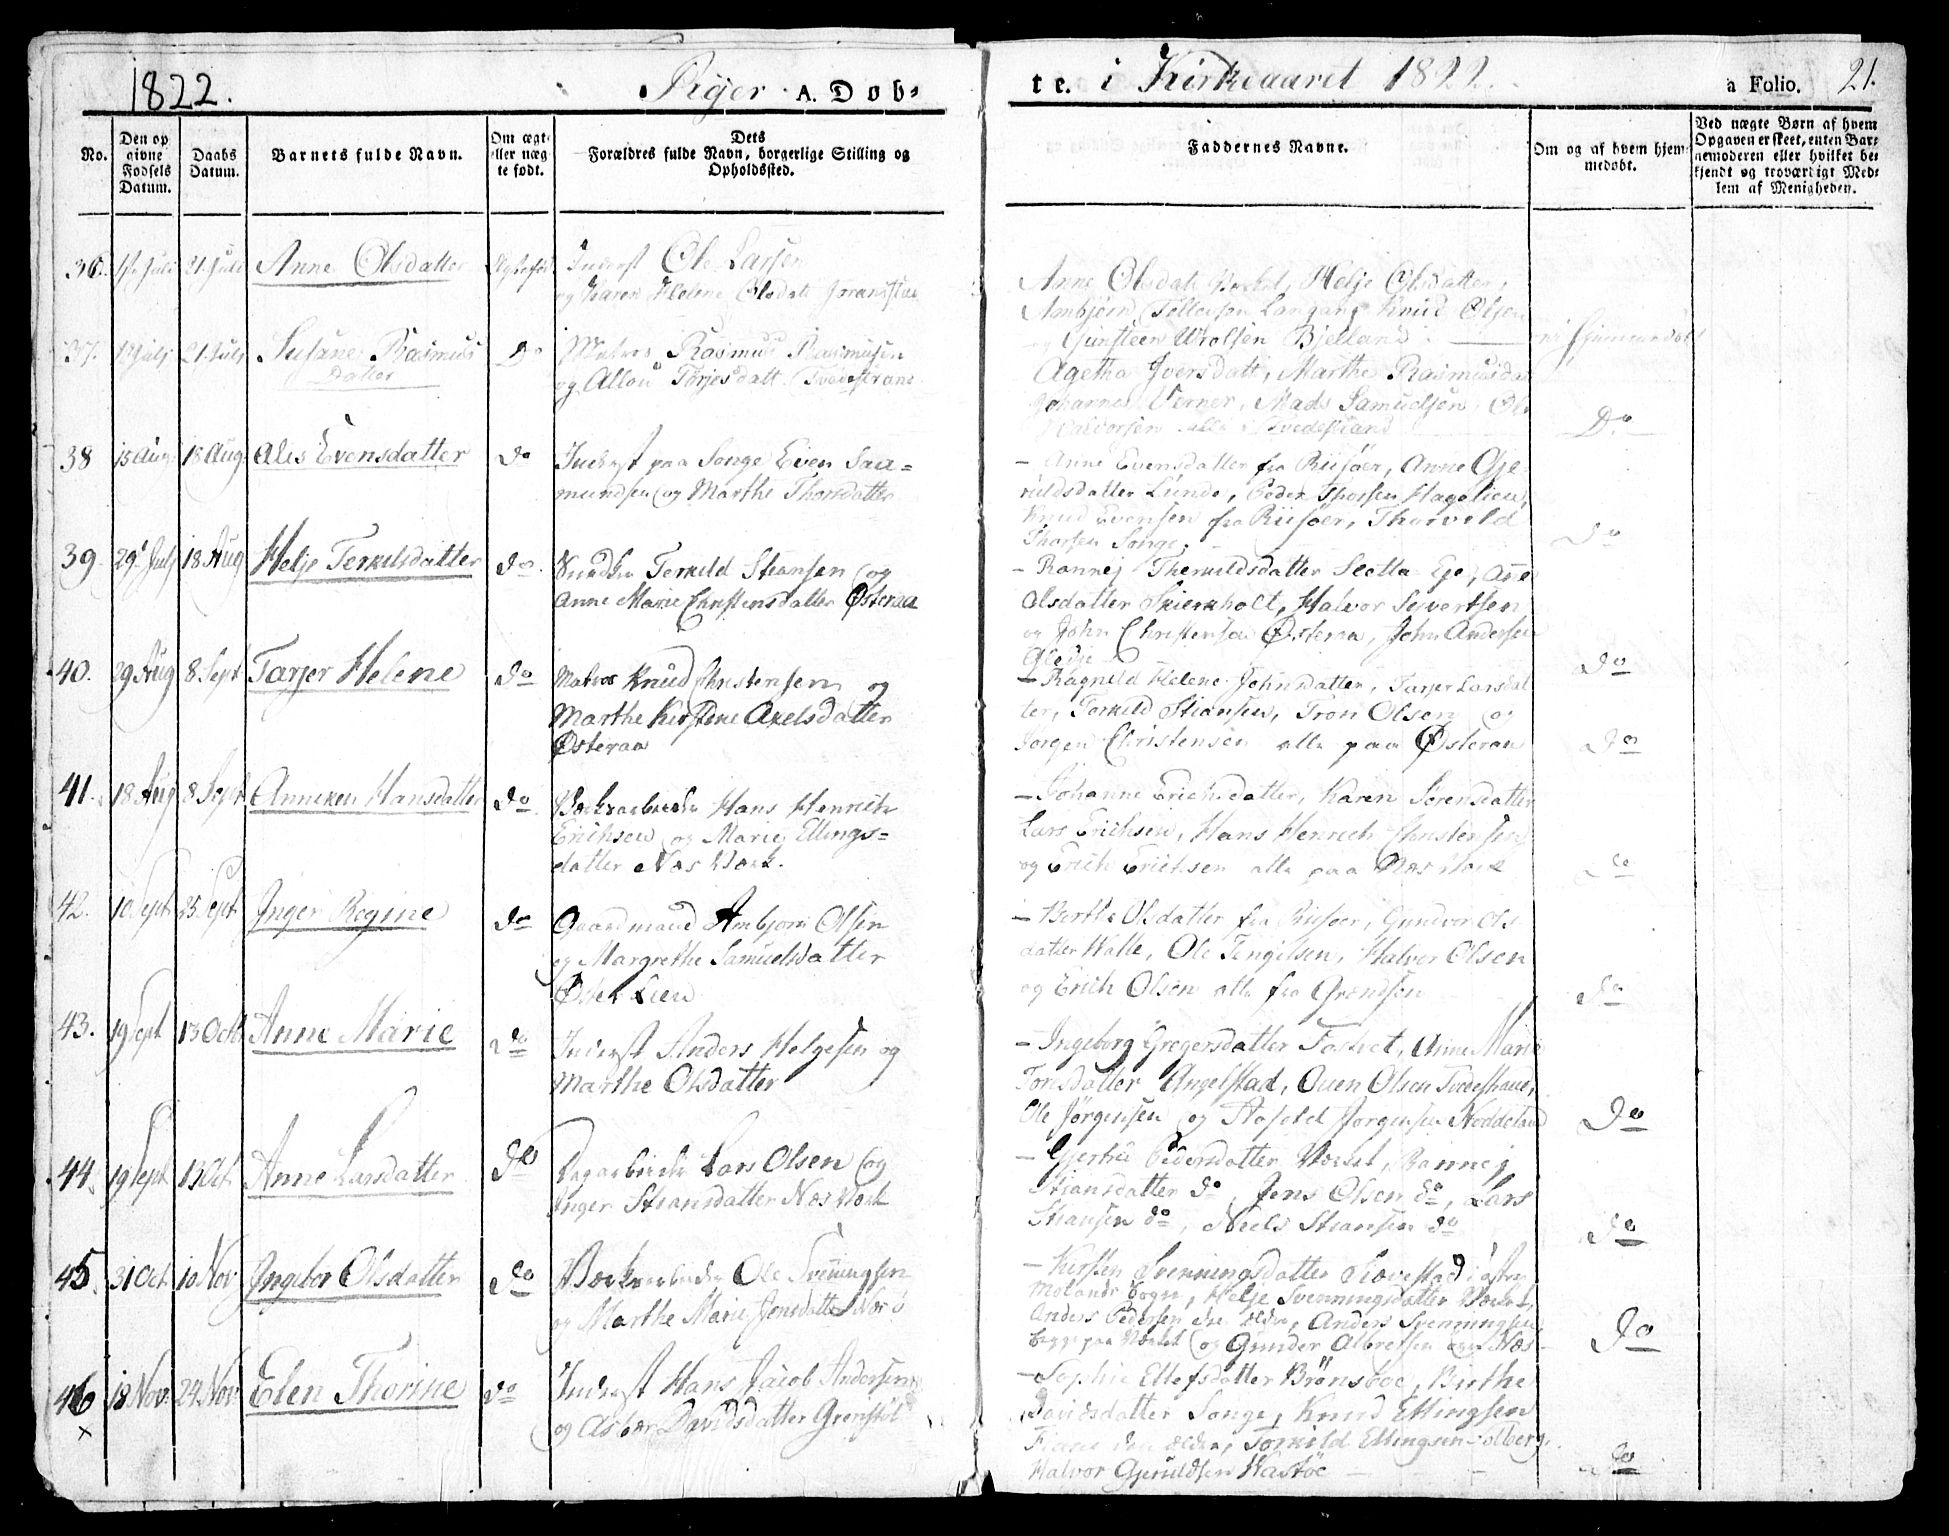 1822.
Piger A. Døb-
te. i Kirkeaaret 1822.
a Folio. 21.
No.
Den op
givne
Fødsels
Datum.
Daabs
Datum.
Barnets fulde Navn.
Om ægt-
eller næg-
te født.
Dets
Forældres fulde Navn, borgerlige Stilling og
Opholdssted.
Faddernes Navne.
Om og af hvem hjem-
medøbt.
Ved nægte Børn af hvem
Opgaven er skeet, enten Bar-
nemoderen eller hvilket be-
kjendt og troværdigt Med-
lem af Menigheden.
36. Juli 21 Juli Anne Olsdatter
Inderst Ole Larsen
og Karen Helene Olsdatt
Anne Olsdatt Helje Olsdatter,
Ambjørn Tellefsen Langang Knud Olsen
Gunsteen Wrolsen Bjelland
37. July 21 July Susane Rasmus
Datter
Do
Matros Rasmus Rasmusen
og Tørjesdatt Tvedestrand
Agethe Iversdatt, Marthe Rasmusdat
Johannes Verner, Mads Samuelsen, Ole
Halvorsen alle Tvedestrand
Do
38 15 Aug 18 Aug Alis Evensdatter do
Inderst paa Songe Even Saa-
mundsen og Marthe Thorsdatter
- Anne Evensdatter fra Riisøer, Anne Gje-
ruldsdatter Lunde, Peder Thorsen Hagelien,
Knud Evensen fra Riisøer, Thorvold
Thorsen Songe.
do
39. 29 July 18 Aug Helje Terkelsdatter do.
Terkild Stiansen og
Anne Marie Christensdatter Østeraa
- Rannej Therkildsdatter Ege, Anne
Olsdatter Skierkholt, Halvor Sivertsen
og John Christensen Østeraa, John Andersen
do
40. 29 Aug 8 Sept Tarjer Helene do
Matros Knud Christensen og
Marthe Kirstine Axelsdatter
Østeraa
- Ragnild Helene Johnsdatter, Tarjer Larsdat-
ter, Terkild Stiansen, Tron Olsen og
Jørgen Christensen alle paa Østeraa
do
41. 18 Aug 8 Sept Anneken Hansdatter do
Værksarbeider Hans Henrich
Erichsen og Marie Ellings-
datter Næs Værk.
- Johanne Erichsdatter, Karen Sørensdatter
Lars Erichsen, Hans Henrich Christensen
og Erich Erichsen alle paa Næs Værk
do
42. 10 Sept 25 Sept Inger Regine do
Gaardmand Ambjørn Olsen
og Margrethe Samuelsdatter
Øster Lien
- Berthe Olsdatter fra Riisøer, Gunvor Ols-
datter Walle, Ole Tengelsen, Halvor Olsen
og Erich Olsen alle fra Grændsen
do
43. 19 Sept 13 Octb Anne Marie do
Inderst Anders Helgesen og
Marthe Olsdatter
- Ingeborg Gregersdatter Fosket, Anne Marie
Tonsdatter Angelstad, Ouen Olsen
Ole Jørgensen og Jørgensen
Do
44. 19 Sept 13 Oct. Anne Larsdatter do
Dagarbeider Lars Olsen og
Inger Stiansdatter Næs Værk
- Gjertru Pedersdatter Værket, Rannej
Stiansdatter do, Jens Olsen do, Lars
Stiansen do, Neels Stiansen do
do
45. 31 Oct. 10 Nov Ingebor Olsdatter do
Værksarbeider Ole Svenningsen
og Marthe Marie Jensdatter
- Kirsten Svenningsdatter i østre
Molands Sogn, Helje Svenningsdatter Værket,
Anders Pedersen den ældre, Anders Svenningsen
begge paa Værket og Gunder Albretsen Næs
Do
46 18 Nov. 24 Nov Elen Thorine do
Inderst Hans Jacob Andersen
og Davidsdatter Grønstøl
- Sophie Ellefsdatter Brønsboe, Birthe
Davidsdatter Songe, Knud Ellingsen
Fiane den ældre, Torkild Ellingsen Solberg
Halvor Gjeruldsen Hastøe
do
x